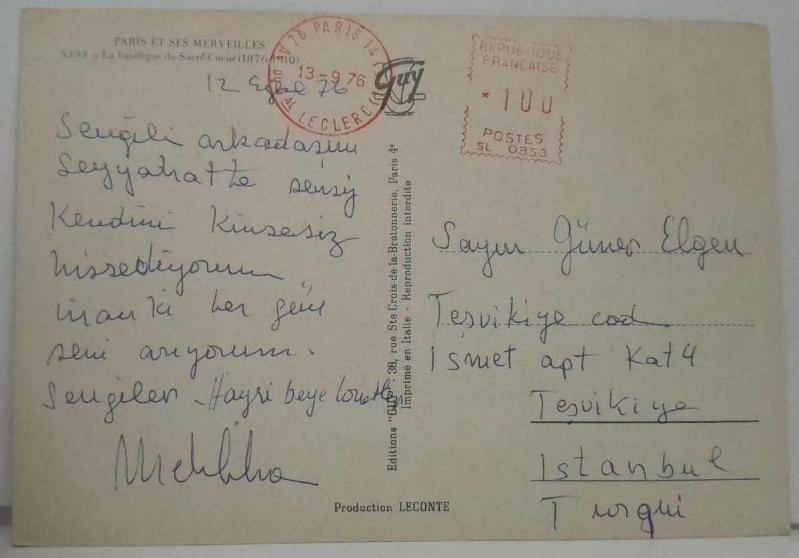 PARIS ET SES MERVEILLES
5393 - La basilique du Sacré-Cœur (1876-1910)
12 Eylül 76
Sevgili arkadaşım
Seyyahatte sensiz
Kendini Kimsesiz
hissediyorum
inan ki her gün
seni arıyorum.
Sevgiler Hayri beye
PARIS 14
13-9-76
AV. DU GAL LECLERC
Guy
REPUBLIQUE
FRANCAISE
* 100
POSTES
SL 0853
Editions "GUY" - 38, rue Ste Croix-de-la-Bretonnerie, Paris 4e
Imprimé en Italie - Reproduction Interdite
Sayın Güner Elgen
Teşvikiye cad
ismet apt Kat 4
Teşvikiye
Istanbul
Turqui
Production LECONTE